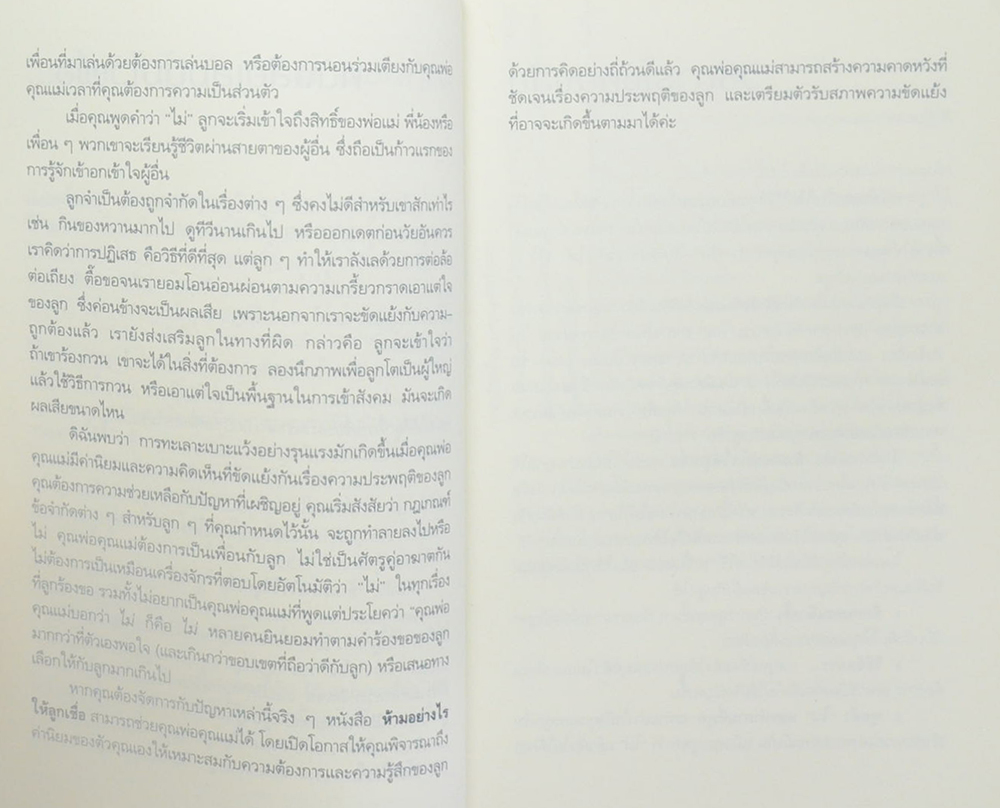 เพื่อนที่มาเล่นด้วยต้องการเล่นบอล หรือต้องการนอนร่วมเตียงกับคุณพ่อ
คุณแม่เวลาที่คุณต้องการความเป็นส่วนตัว
เมื่อคุณพูดคำว่า "ไม่" ลูกจะเริ่มเข้าใจถึงสิทธิ์ของพ่อแม่ พี่น้องหรือ
เพื่อน ๆ พวกเขาจะเรียนรู้ชีวิตผ่านสายตาของผู้อื่น ซึ่งถือเป็นก้าวแรกของ
การรู้จักเข้าอกเข้าใจผู้อื่น
ลูกจำเป็นต้องถูกจำกัดในเรื่องต่าง ๆ ซึ่งคงไม่ดีสำหรับเขาสักเท่าไร
เช่น กินของหวานมากไป ดูทีวีนานเกินไป หรือออกเดตก่อนวัยอันควร
เราคิดว่าการปฏิเสธ คือวิธีที่ดีที่สุด แต่ลูก ๆ ทำให้เราลังเลด้วยการต่อล้อ
ต่อเถียง ตื๊อขอจนเรายอมโอนอ่อนผ่อนตามความเกรี้ยวกราดเอาแต่ใจ
ของลูก ซึ่งค่อนข้างจะเป็นผลเสีย เพราะนอกจากเราจะขัดแย้งกับความ-
ถูกต้องแล้ว เรายังส่งเสริมลูกในทางที่ผิด กล่าวคือ ลูกจะเข้าใจว่า
ถ้าเขาร้องกวน เขาจะได้ในสิ่งที่ต้องการ ลองนึกภาพเพื่อลูกโตเป็นผู้ใหญ่
แล้วใช้วิธีการกวน หรือเอาแต่ใจเป็นพื้นฐานในการเข้าสังคม มันจะเกิด
ผลเสียขนาดไหน
ดิฉันพบว่า การทะเลาะเบาะแว้งอย่างรุนแรงมักเกิดขึ้นเมื่อคุณพ่อ
คุณแม่มีค่านิยมและความคิดเห็นที่ขัดแย้งกันเรื่องความประพฤติของลูก
คุณต้องการความช่วยเหลือกับปัญหาที่เผชิญอยู่ คุณเริ่มสงสัยว่า กฎเกณฑ์
ข้อจำกัดต่าง ๆ สำหรับลูก ๆ ที่คุณกำหนดไว้นั้น จะถูกทำลายลงไปหรือ
ไม่ คุณพ่อคุณแม่ต้องการเป็นเพื่อนกับลูก ไม่ใช่เป็นศัตรูคู่อาฆาตกัน
ไม่ต้องการเป็นเหมือนเครื่องจักรที่ตอบโดยอัตโนมัติว่า "ไม่" ในทุกเรื่อง
ที่ลูกร้องขอ รวมทั้งไม่อยากเป็นคุณพ่อคุณแม่ที่พูดแต่ประโยคว่า "คุณพ่อ
คุณแม่บอกว่า ไม่ ก็คือ ไม่ หลายคนยินยอมทำตามคำร้องขอของลูก
มากกว่าที่ตัวเองพอใจ (และเกินกว่าขอบเขตที่ถือว่าดีกับลูก) หรือเสนอทาง
เลือกให้กับลูกมากเกินไป
หากคุณต้องจัดการกับปัญหาเหล่านี้จริง ๆ หนังสือ ห้ามอย่างไร
ให้ลูกเชื่อ สามารถช่วยคุณพ่อคุณแม่ได้ โดยเปิดโอกาสให้คุณพิจารณาถึง
ค่านิยมของตัวคุณเองให้เหมาะสมกับความต้องการและความรู้สึกของลูก
ด้วยการคิดอย่างถี่ถ้วนดีแล้ว คุณพ่อคุณแม่สามารถสร้างความคาดหวังที่
ชัดเจนเรื่องความประพฤติของลูก และเตรียมตัวรับสภาพความขัดแย้ง
ที่อาจจะเกิดขึ้นตามมาได้ค่ะ